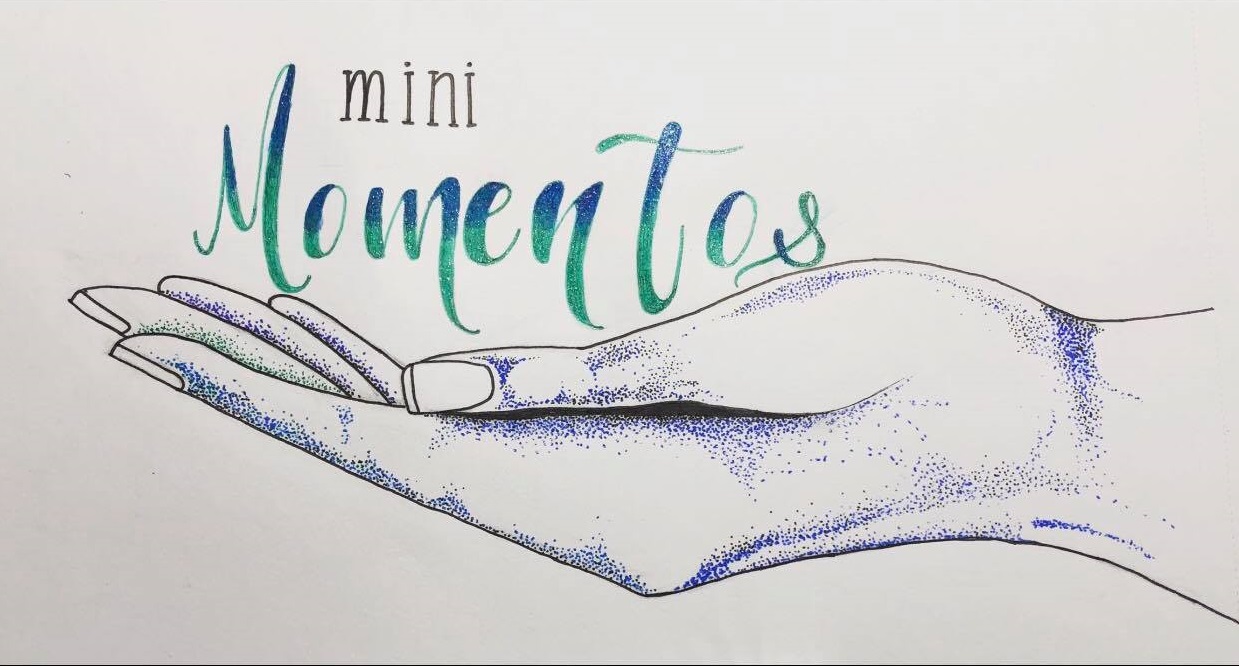 mini
Momentos